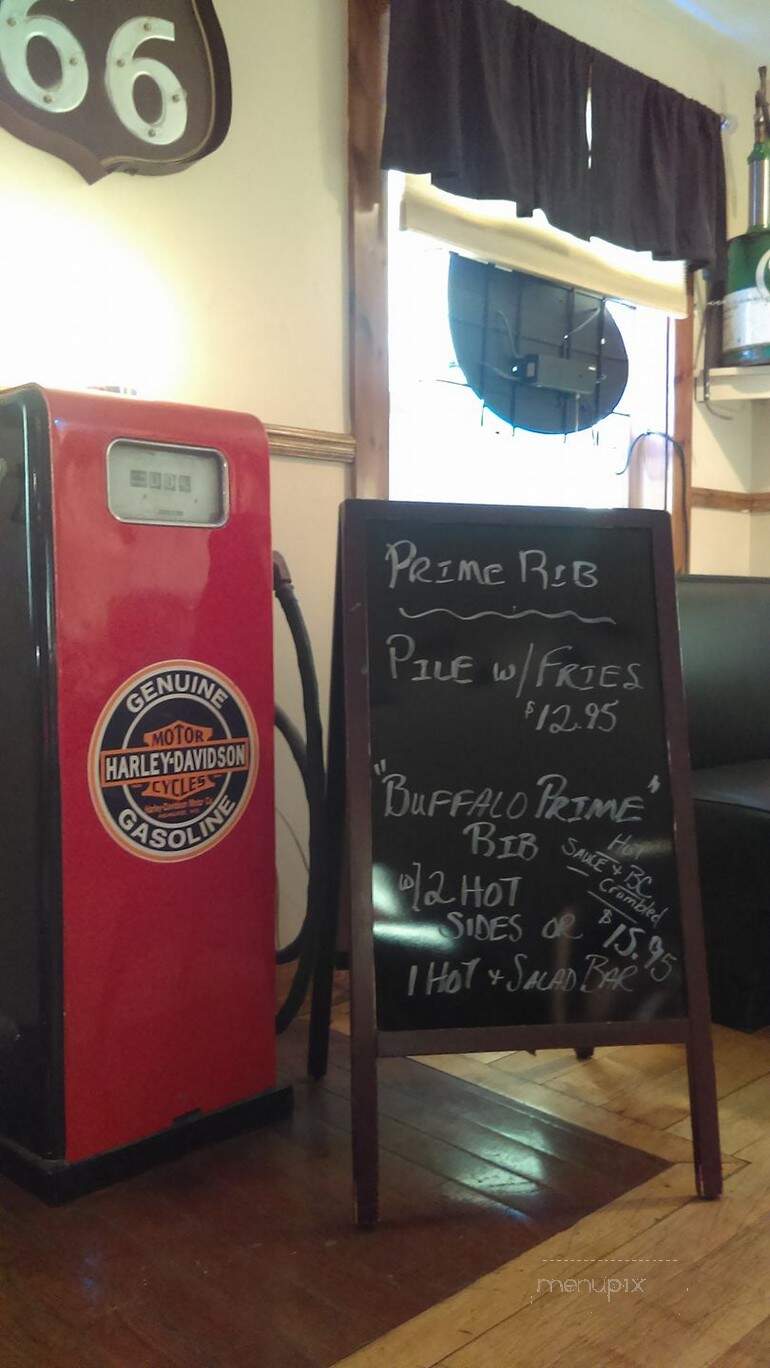 66
GENUINE
MOTOR
HARLEY-DAVIDSON
CYCLES
GASOLINE
PRIME RIB
PILE W/FRIES
$12.95
"BUFFALO PRIME"
RIB
HOT
SAUCE & BC
Crumbled
w/2 HOT
SIDES OR
$15.95
1 HOT & SALAD BAR
menupix